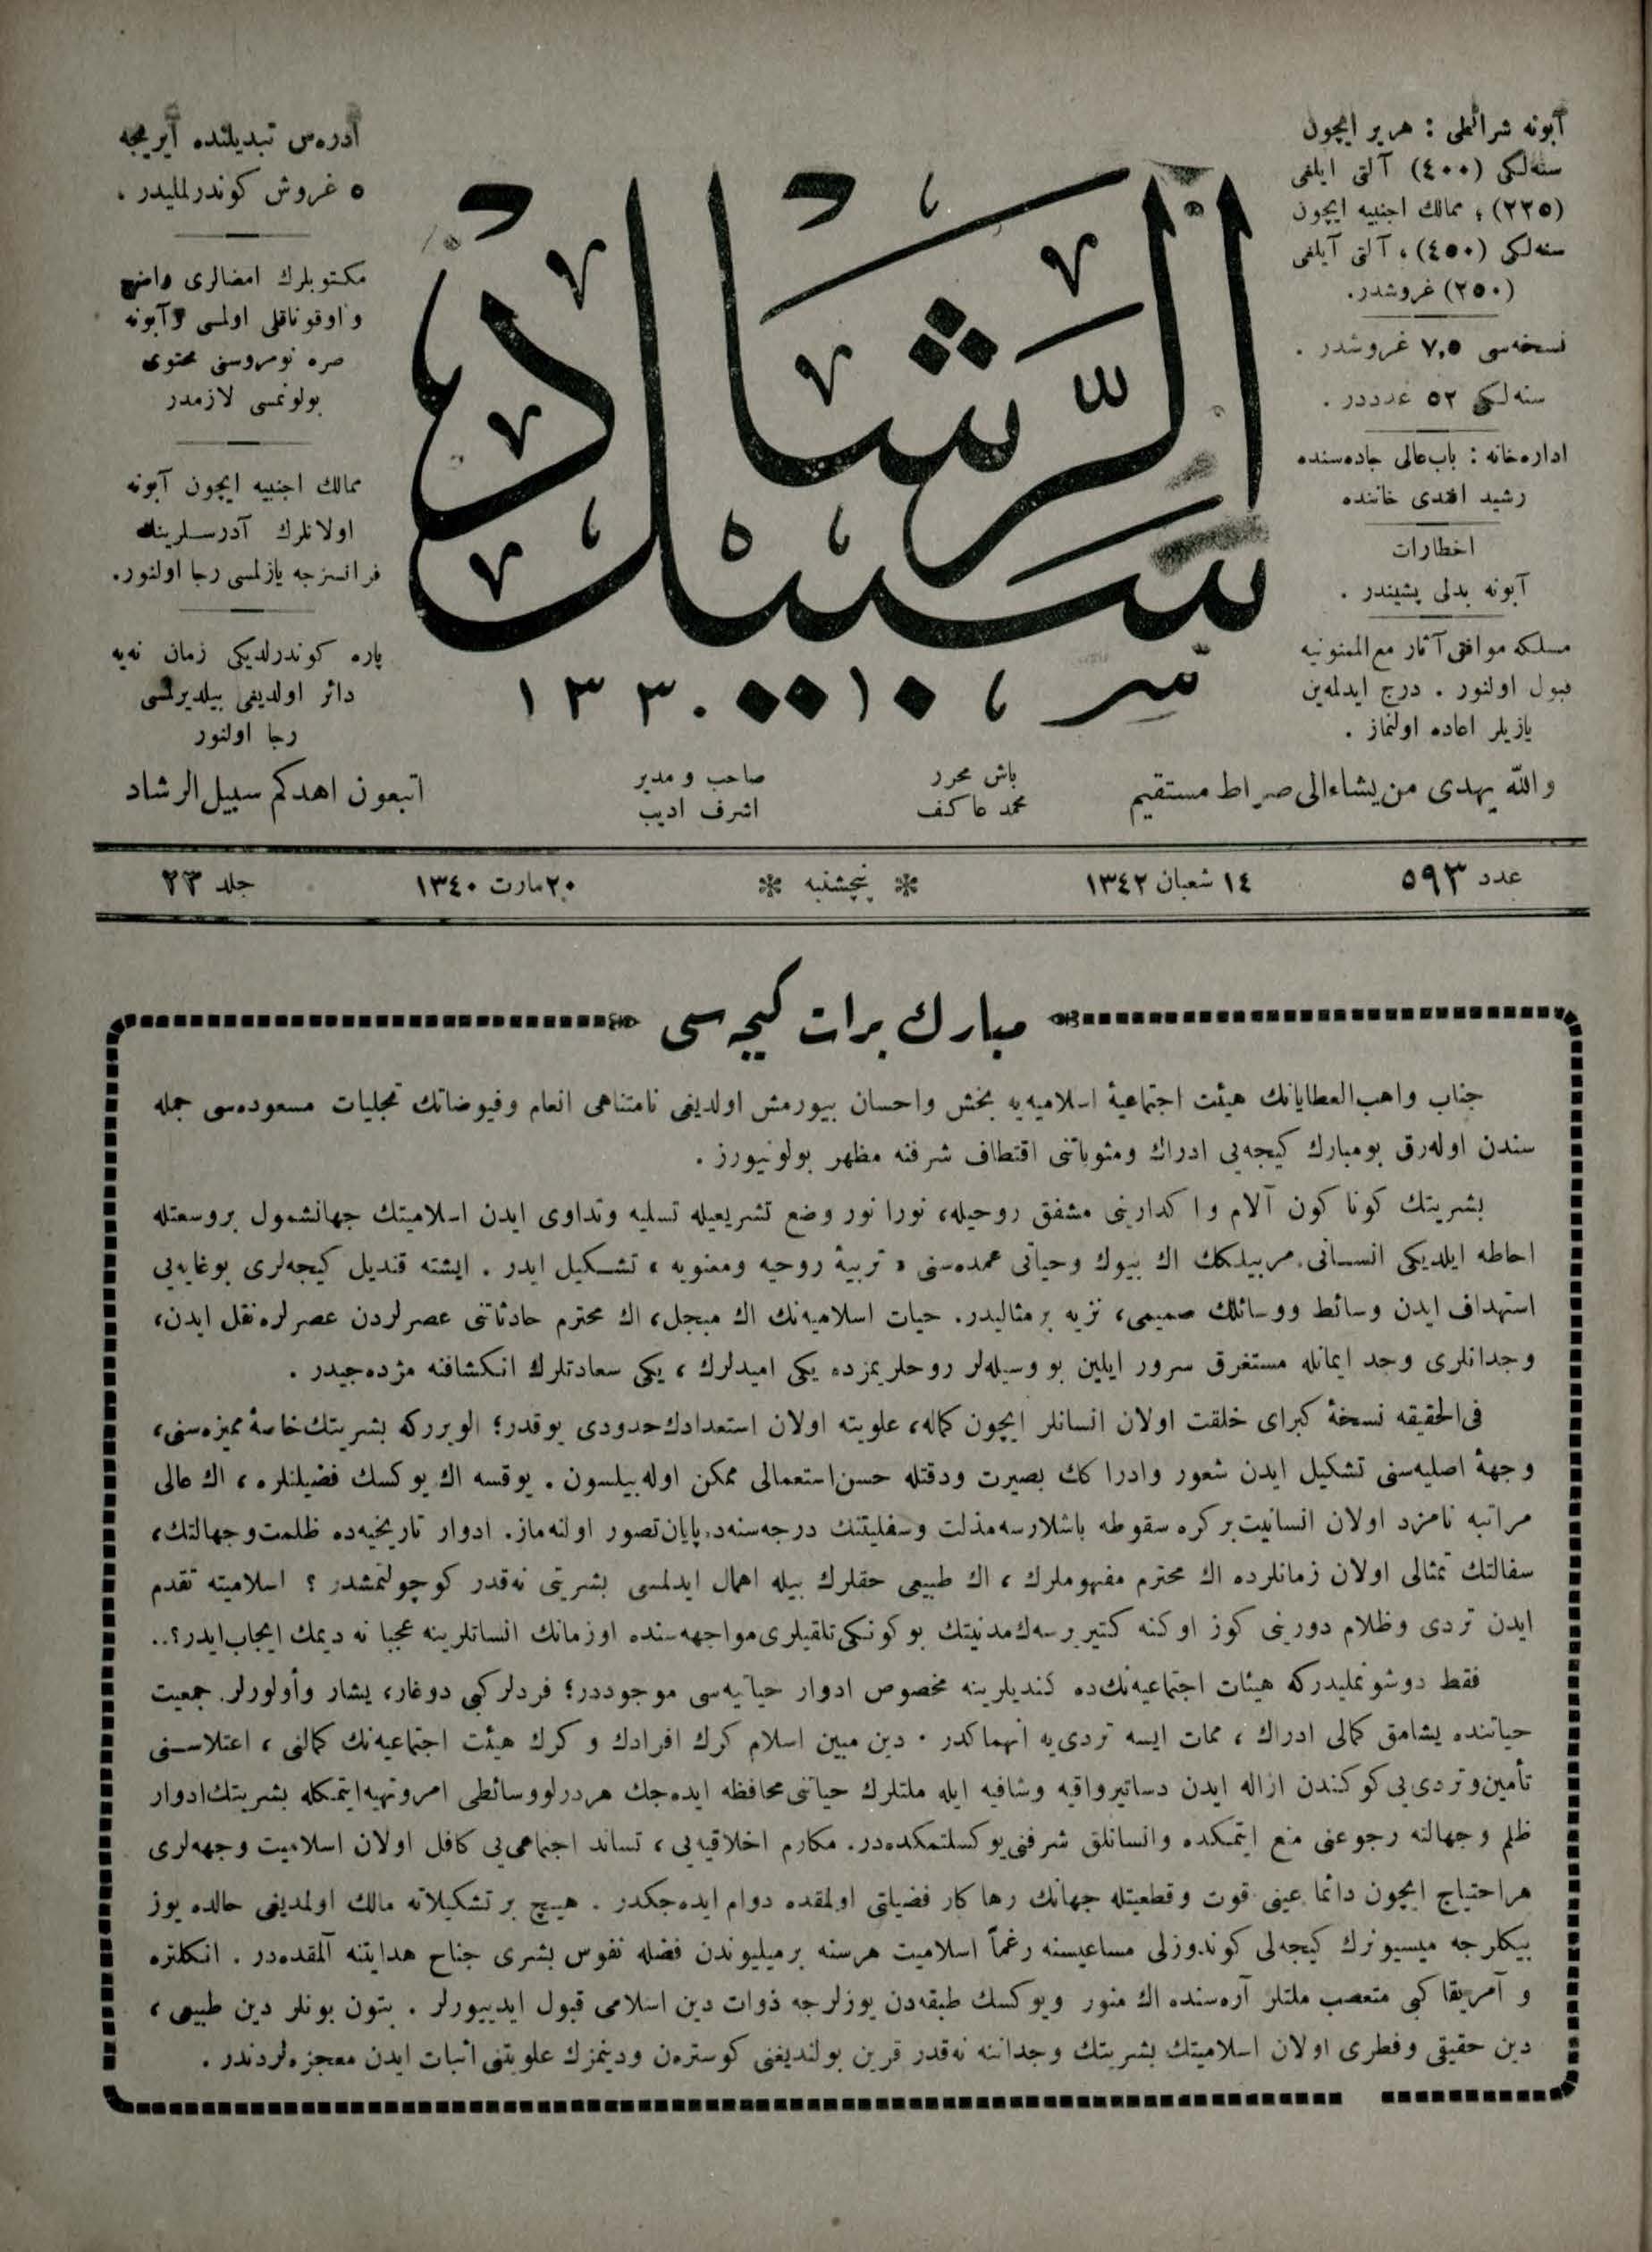 آبونه شرائطی : هر یر ایچون
سنه‌لکی (٤٠٠) آلتی ایلغی
(٢٢٥) ؛ ممالك اجنبیه ایچون
سنه‌لکی (٤٥٠) ، آلتی آیلغی
(٢٥٠) غروشدر.
نسخه‌سی ٧,٥ غروشدر .
سنه‌لکی ٥٢ عدددر .
اداره‌خانه : باب‌عالی جاده‌سنده
رشید افندی خاننده
اخطارات
آبونه بدلی پشیندر .
مسلکه موافق آثار مع‌الممنونیه
قبول اولنور . درج ایدلمه‌ین
یازیلر اعاده اولنماز .
سبیل الرشاد
١٣٣٠
آدره‌س تبدیلنده آیریجه
٥ غروش کوندرلملیدر .
مکتوبلرك امضالری واضح
و اوقوناقلی اولمسی و آبونه
صره نومروسنی محتوی
بولونمسی لازمدر
ممالك اجنبیه ایچون آبونه
اولانلرك آدرسلرینك
فرانسزجه یازلمسی رجا اولنور.
پاره کوندرلدیکی زمان نه‌یه
دائر اولدیغی بیلدیرلمسی
رجا اولنور
والله یهدی من یشاءالی صراط مستقیم
باش محرر
محمد عاکف
صاحب و مدیر
اشرف ادیب
اتبعون اهدکم سبیل الرشاد
عدد ٥٩٣
١٤ شعبان ١٣٤٢
پنجشنبه
٢٠ مارت ١٣٤٠
جلد ٢٣
مبارك برات کیجه‌سی
جناب واهب‌العطایانك هیئت اجتماعیهٔ اسلامیه‌یه بخش واحسان بیورمش اولدیغی نامتناهی انعام وفیوضاتك تجلیات مسعوده‌سی جمله
سندن اوله‌رق بومبارك کیجه‌یی ادراك ومثوباتنی اقتطاف شرفنه مظهر بولونیورز .
بشریتك کونا کون آلام و اکدارینی مشفق روحیله، نورا نور وضع تشریعیله تسلیه وتداوی ایدن اسلامیتك جهانشمول بروسعتله
احاطه ایلدیکی انسانی مربیلکك اك بیوك وحیاتی عمده‌سنی « تربیهٔ روحیه ومعنویه » تشکیل ایدر . ایشته قندیل کیجه‌لری بوغایه‌یی
استهداف ایدن وسائط ووسائلك صمیمی، نزیه بر مثالیدر. حیات اسلامیه‌نك اك مبجل، اك محترم حادثاتنی عصرلردن عصرلره نقل ایدن،
وجدانلری وجد ایمانله مستغرق سرور ایلین بو وسیله‌لر روحلریمزده یکی امیدلرك ، یکی سعادتلرك انکشافنه مژده‌جیدر .
فی‌الحقیقه نسخهٔ کبرای خلقت اولان انسانلر ایچون کماله، علویته اولان استعدادك حدودی یوقدر؛ الویررکه بشریتك خاصهٔ ممیزه‌سنی،
وجههٔ اصلیه‌سنی تشکیل ایدن شعور وادراکك بصیرت ودقتله حسن‌استعمالی ممکن اوله بیلسون . یوقسه اك یوکسك فضیلتلره ، اك عالی
مراتبه نامزد اولان انسانیت برکره سقوطه باشلارسه مذلت وسفلیتنك درجه‌سنه‌ده پایان تصور اولنه‌ماز. ادوار تاریخیه‌ده ظلمت وجهالتك،
سفالتك تمثالی اولان زمانلرده اك محترم مفهوملرك ، اك طبیعی حقلرك بیله اهمال ایدلمسی بشریتی نه‌قدر کوچولتمشدر ؟ اسلامیته تقدم
ایدن تردی وظلام دورینی کوز اوکنه کتیریرسه‌ك مدنیتك بوکونکی تلقیلری مواجهه‌سنده اوزمانك انسانلرینه عجبا نه دیمك ایجاب ایدر؟..
فقط دوشونملیدرکه هیئات اجتماعیه‌نك‌ده کندیلرینه مخصوص ادوار حیاتیه‌سی موجوددر؛ فردلرکبی دوغار، یشار وأولورلر. جمعیت
حیاتنده یشامق کمالی ادراك ، ممات ایسه تردی‌یه انهماکدر . دین مبین اسلام کرك افرادك و کرك هیئت اجتماعیه‌نك کمالنی ، اعتلاسنی
تأمین وتردی‌یی کوکندن ازاله ایدن دساتیر واقیه وشافیه ایله ملتلرك حیاتنی محافظه ایده‌جك هردرلو وسائطی امر وتهیه ایتمکله بشریتك ادوار
ظلم وجهالته رجوعنی منع ایتمکده وانسانلق شرفنی یوکسلتمکده‌در. مکارم اخلاقیه‌یی ، تساند اجتماعی‌یی کافل اولان اسلامیت وجهه‌لری
هر احتیاج ایچون دائما عینی قوت وقطعیتله جهانك رهاکار فضیلتی اولمقده دوام ایده‌جکدر . هیچ بر تشکیلاته مالك اولمدیغی حالده یوز
بیکلرجه میسیونرك کیجه‌لی کوندوزلی مساعیسنه رغماً اسلامیت هرسنه برمیلیوندن فضله نفوس بشری جناح هدایتنه آلمقده‌در . انکلتره
و آمریقا کبی متعصب ملتلر آره‌سنده اك منور ویوکسك طبقه‌دن یوزلرجه ذوات دین اسلامی قبول ایدییورلر . بتون بونلر دین طبیعی ،
دین حقیقی وفطری اولان اسلامیتك بشریتك وجداننه نه‌قدر قرین بولندیغنی کوسترەن ودینمزك علویتنی اثبات ایدن معجزه‌لردندر .